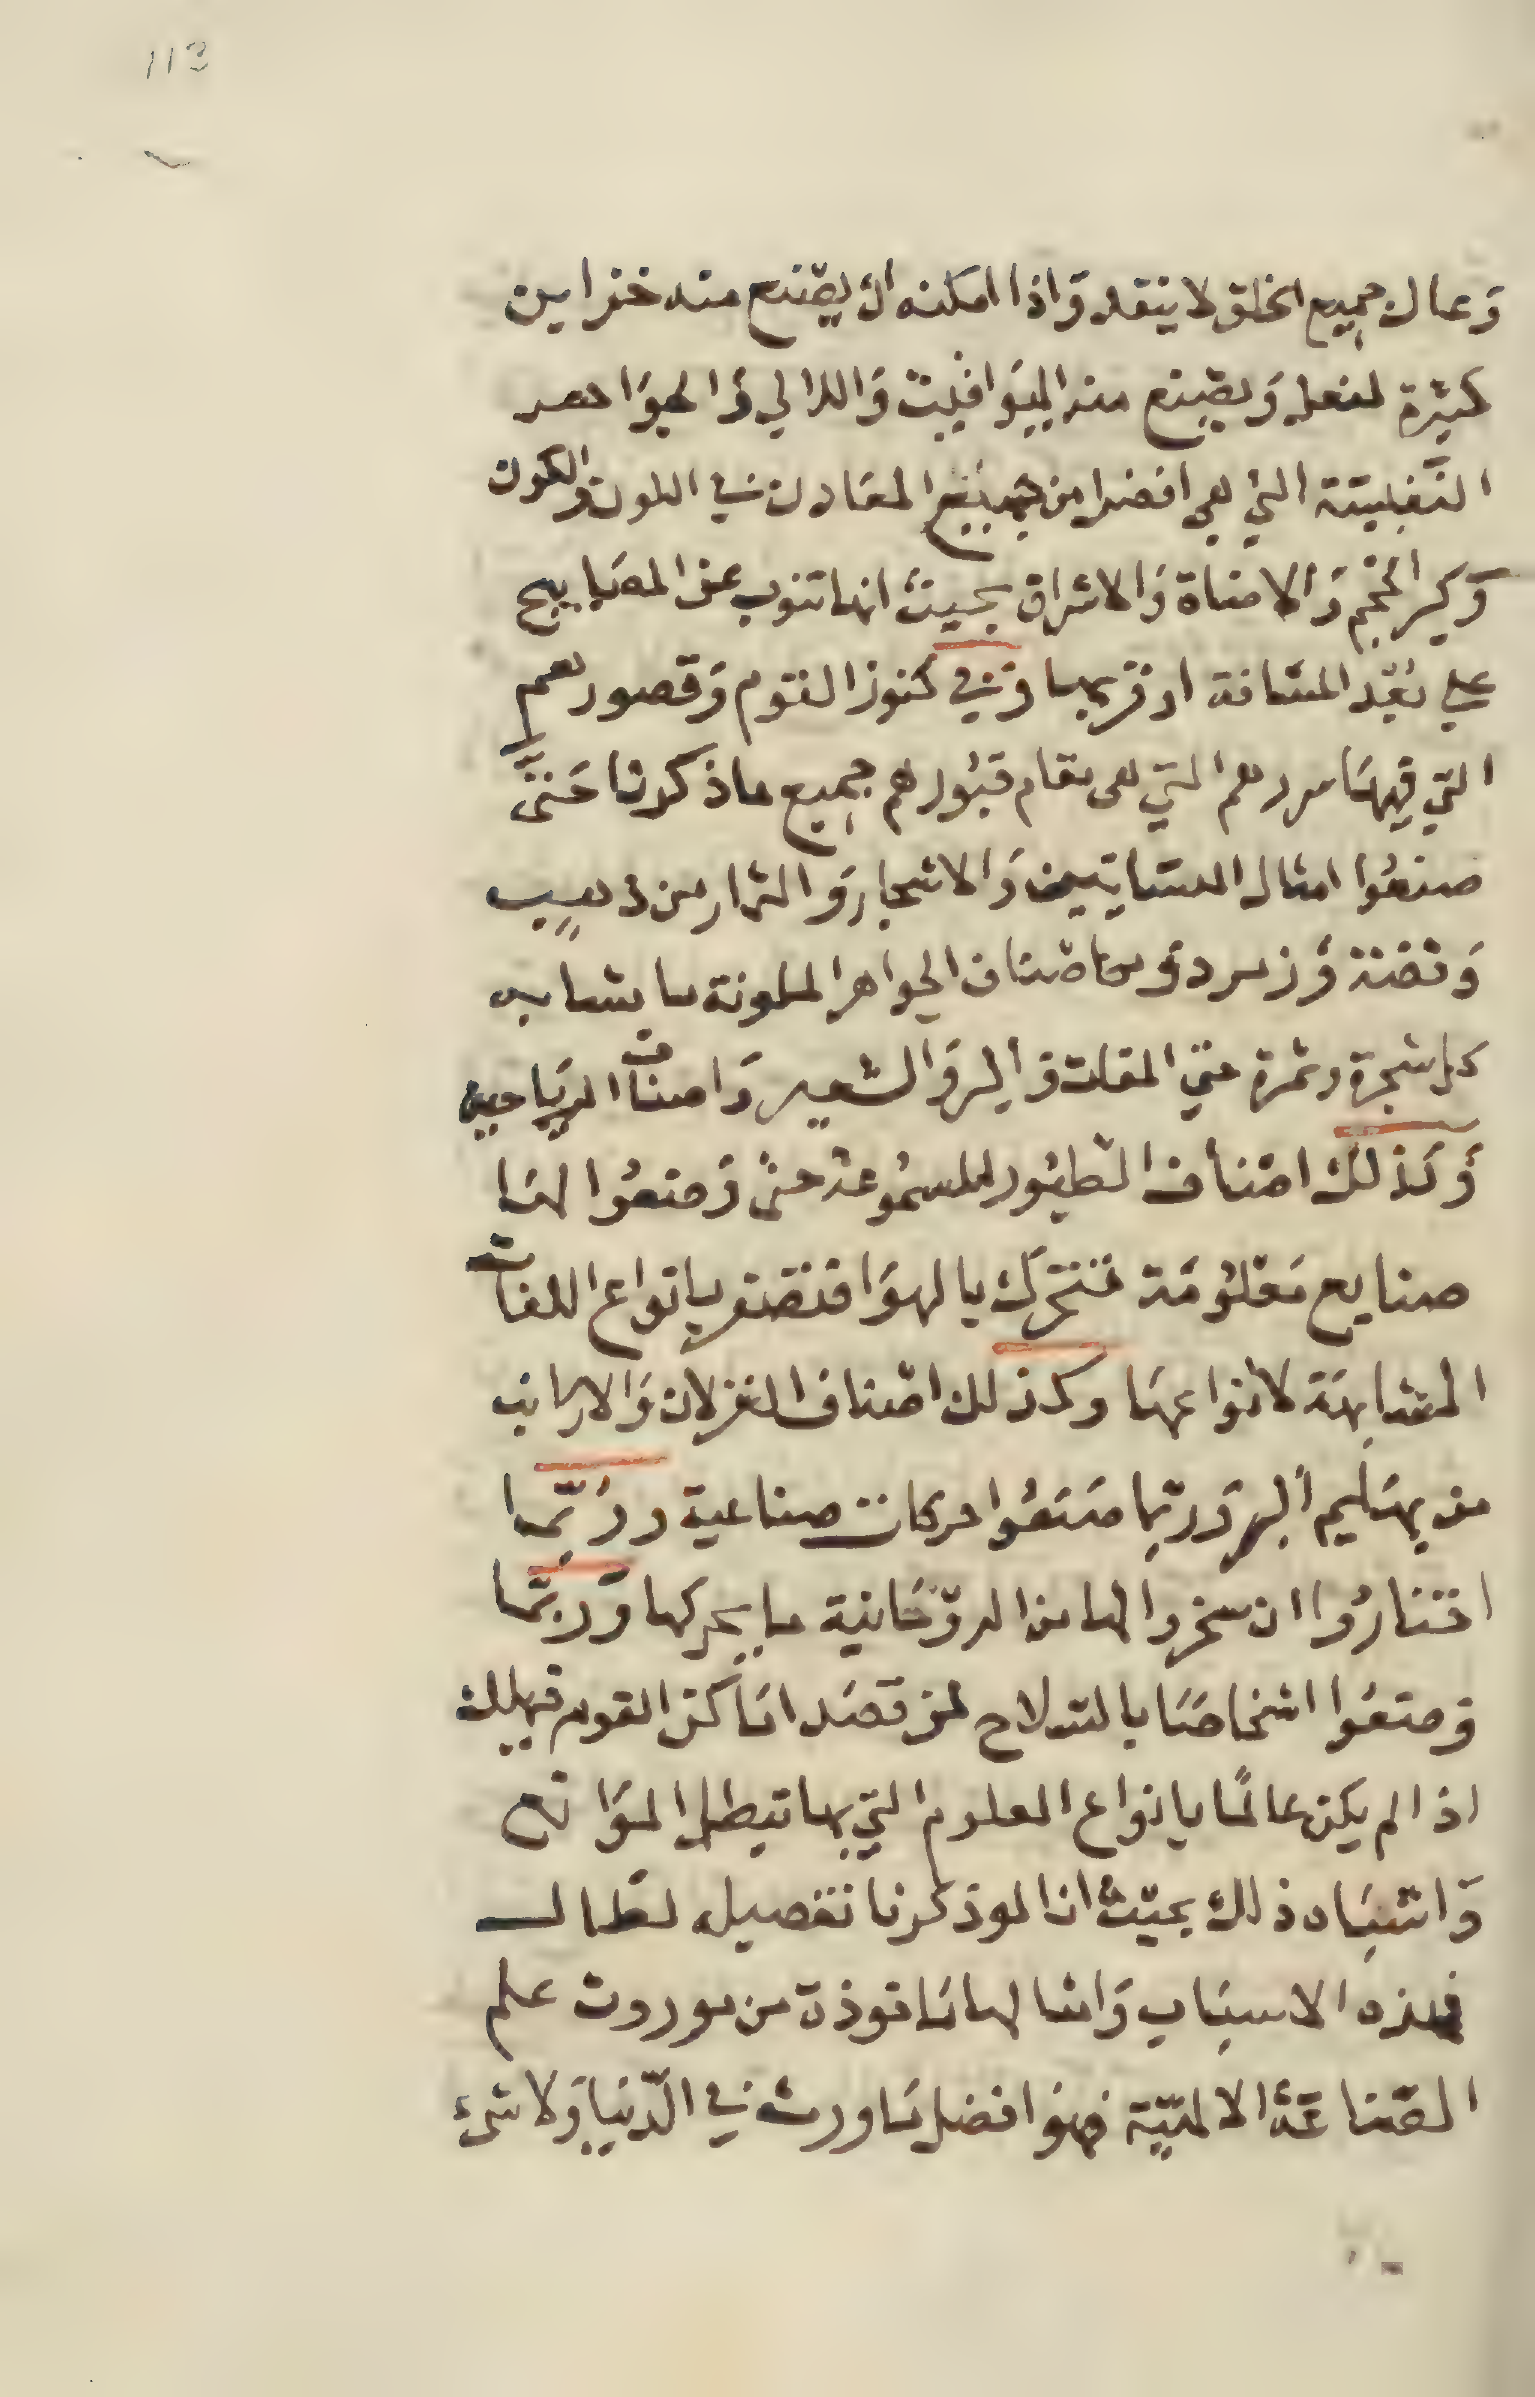 113
وعال جميع الخلق لا ينقد واذا امكنه ان يصنع منه خزاين
كثيرة لفعل ويصنع منه اليواقيت واللالي والجواهر
النفيسة التي هي افضل من جميع المعادن في اللون والكون
وكبر الحجم والاضاة والاشراق بحيث انها تنوب عن المصابيح
على بعد المسافة او قربها وفي كنوز القوم وقصورهم
التي فيها سررهم التي هي مقام قبورهم جميع ما ذكرنا حتى
صنعوا امثال البساتين والاشجار والثمار من ذهب
وفضة وزمرد وساصناف الجواهر الملونة ما يشابه
كل شجرة وثمرة حتي المقات والبر والشعير واصناف الرياحين
وكذلك اصناف الطيور المسموعة حتى وصنعوا لها
صنايع معلومة فتتحرك بالهوا فتصفر بانواع اللغات
المتشابهة لانواعها وكذلك اصناف الغزلان والارانب
من بهايم البر وربما صنعوا حركات صناعية وربما
اختاروا ان سخروا لها من الروحانية ما يحركها وربما
وصنعوا اشخاصا بالسلاح لمن قصد اماكن القوم فيهلك
اذا لم يكن عالما بانواع العلوم التي بها تبطل الموانع
واشباه ذلك بحيث اذا لو ذكرنا تفصيله لطال
فهذه الاسباب وامثالها ماخوذة من موروث علم
الصناعة الالهية فهو افضل ما ورث في الدنيا ولا شئ